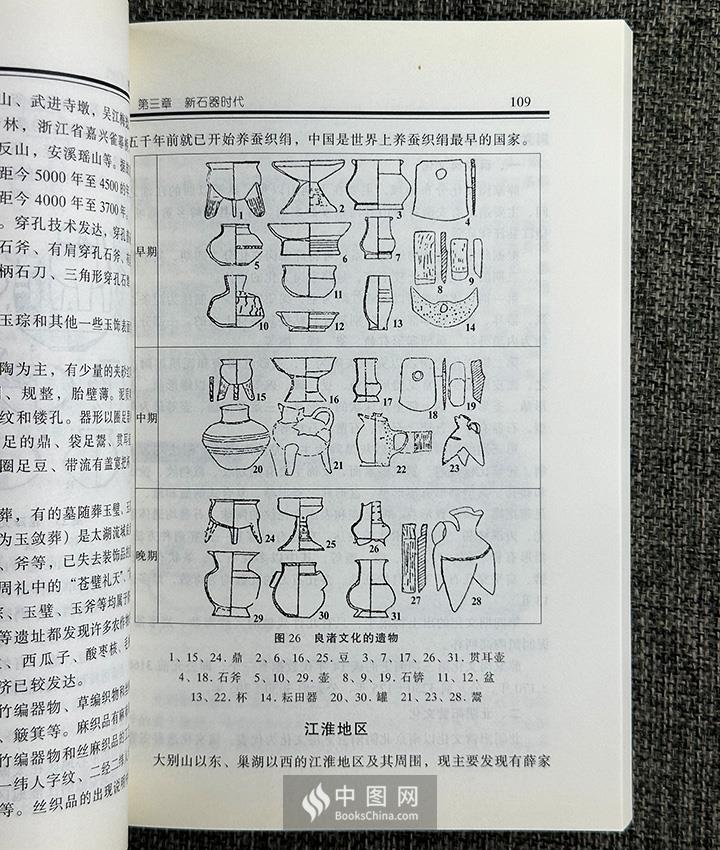 山、武进寺墩，吴江梅
林，浙江省嘉兴雀幕
反山，安溪瑶山等。据
距今 5000 年至 4500 的年
距今 4000 年至 3700 年。
。穿孔技术发达，穿孔
石斧、有肩穿孔石斧、有
柄石刀、三角形穿孔石
玉琮和其他一些玉饰表面
陶为主，有少量的夹砂
、规整，胎壁薄。泥质
纹和镂孔。器形以圈足
足的鼎、袋足鬶、贯耳
圈足豆、带流有盖宽把
葬，有的墓随葬玉璧、玉
为玉敛葬）是太湖流域
、斧等，已失去装饰品
周礼中的“苍璧礼天”、“
、玉璧、玉斧等均属于
等遗址都发现许多农作物
、西瓜子、酸枣核、毛
济已较发达。
竹编器物、草编织物和
、簸箕等。麻织品有麻
竹编器物和丝麻织品的
一纬人字纹、二经二纬
等。丝织品的出现说明
第三章 新石器时代 109
五千年前就已开始养蚕织绢，中国是世界上养蚕织绢最早的国家。
早期
1 2 3 4
5 6 7 8 9
10 11 12 13 14
中期
15 16 17 18 19
20 21 22 23
晚期
24 25 26 27 28
29 30 31
图 26 良渚文化的遗物
1、15、24. 鼎 2、6、16、25. 豆 3、7、17、26、31. 贯耳壶
4、18. 石斧 5、10、29. 壶 8、9、19. 石锛 11、12. 盆
13、22. 杯 14. 耘田器 20、30. 罐 21、23、28. 鬶
江淮地区
大别山以东、巢湖以西的江淮地区及其周围，现主要发现有薛家
中图网
BooksChina.com